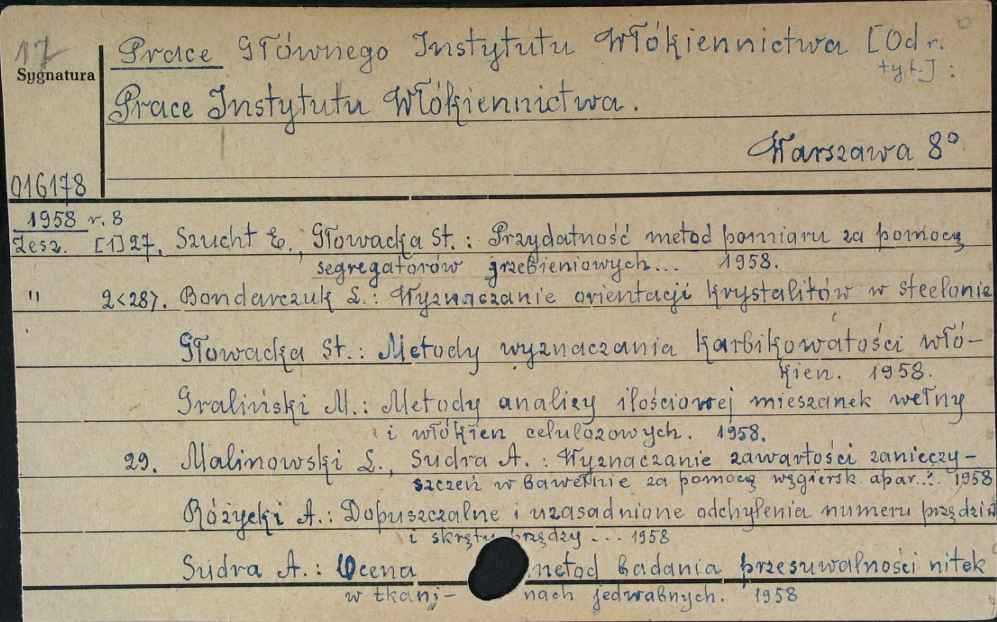 17
Prace Głównego Instytutu Włókiennictwa [Odr.
tyt.] :
Sygnatura
Prace Instytutu Włókiennictwa.
Warszawa 8°
016178
1958 r. 8
Zesz. [1]27. Szucht E., Głowacka St. : Przydatność metod pomiaru za pomocą
segregatorów grzebieniowych... 1958.
" 2<28>. Bondarczuk L. : Wyznaczanie orientacji krystalitów w steelonie
Głowacka St. : Metody wyznaczania karbikowatości włó-
kien. 1958.
Graliński M. : Metody analizy ilościowej mieszanek wełny
i włókien celulozowych. 1958.
29. Malinowski L., Sudra A. : Wyznaczanie zawartości zanieczy-
szczeń w bawełnie za pomocą węgiersk. apar... 1958
Różycki A. : Dopuszczalne i uzasadnione odchylenia numeru przędzin
i skrętu przędzy ... 1958
Sudra A. : Ocena metod badania przesuwalności nitek
w tkani- nach jedwabnych. 1958